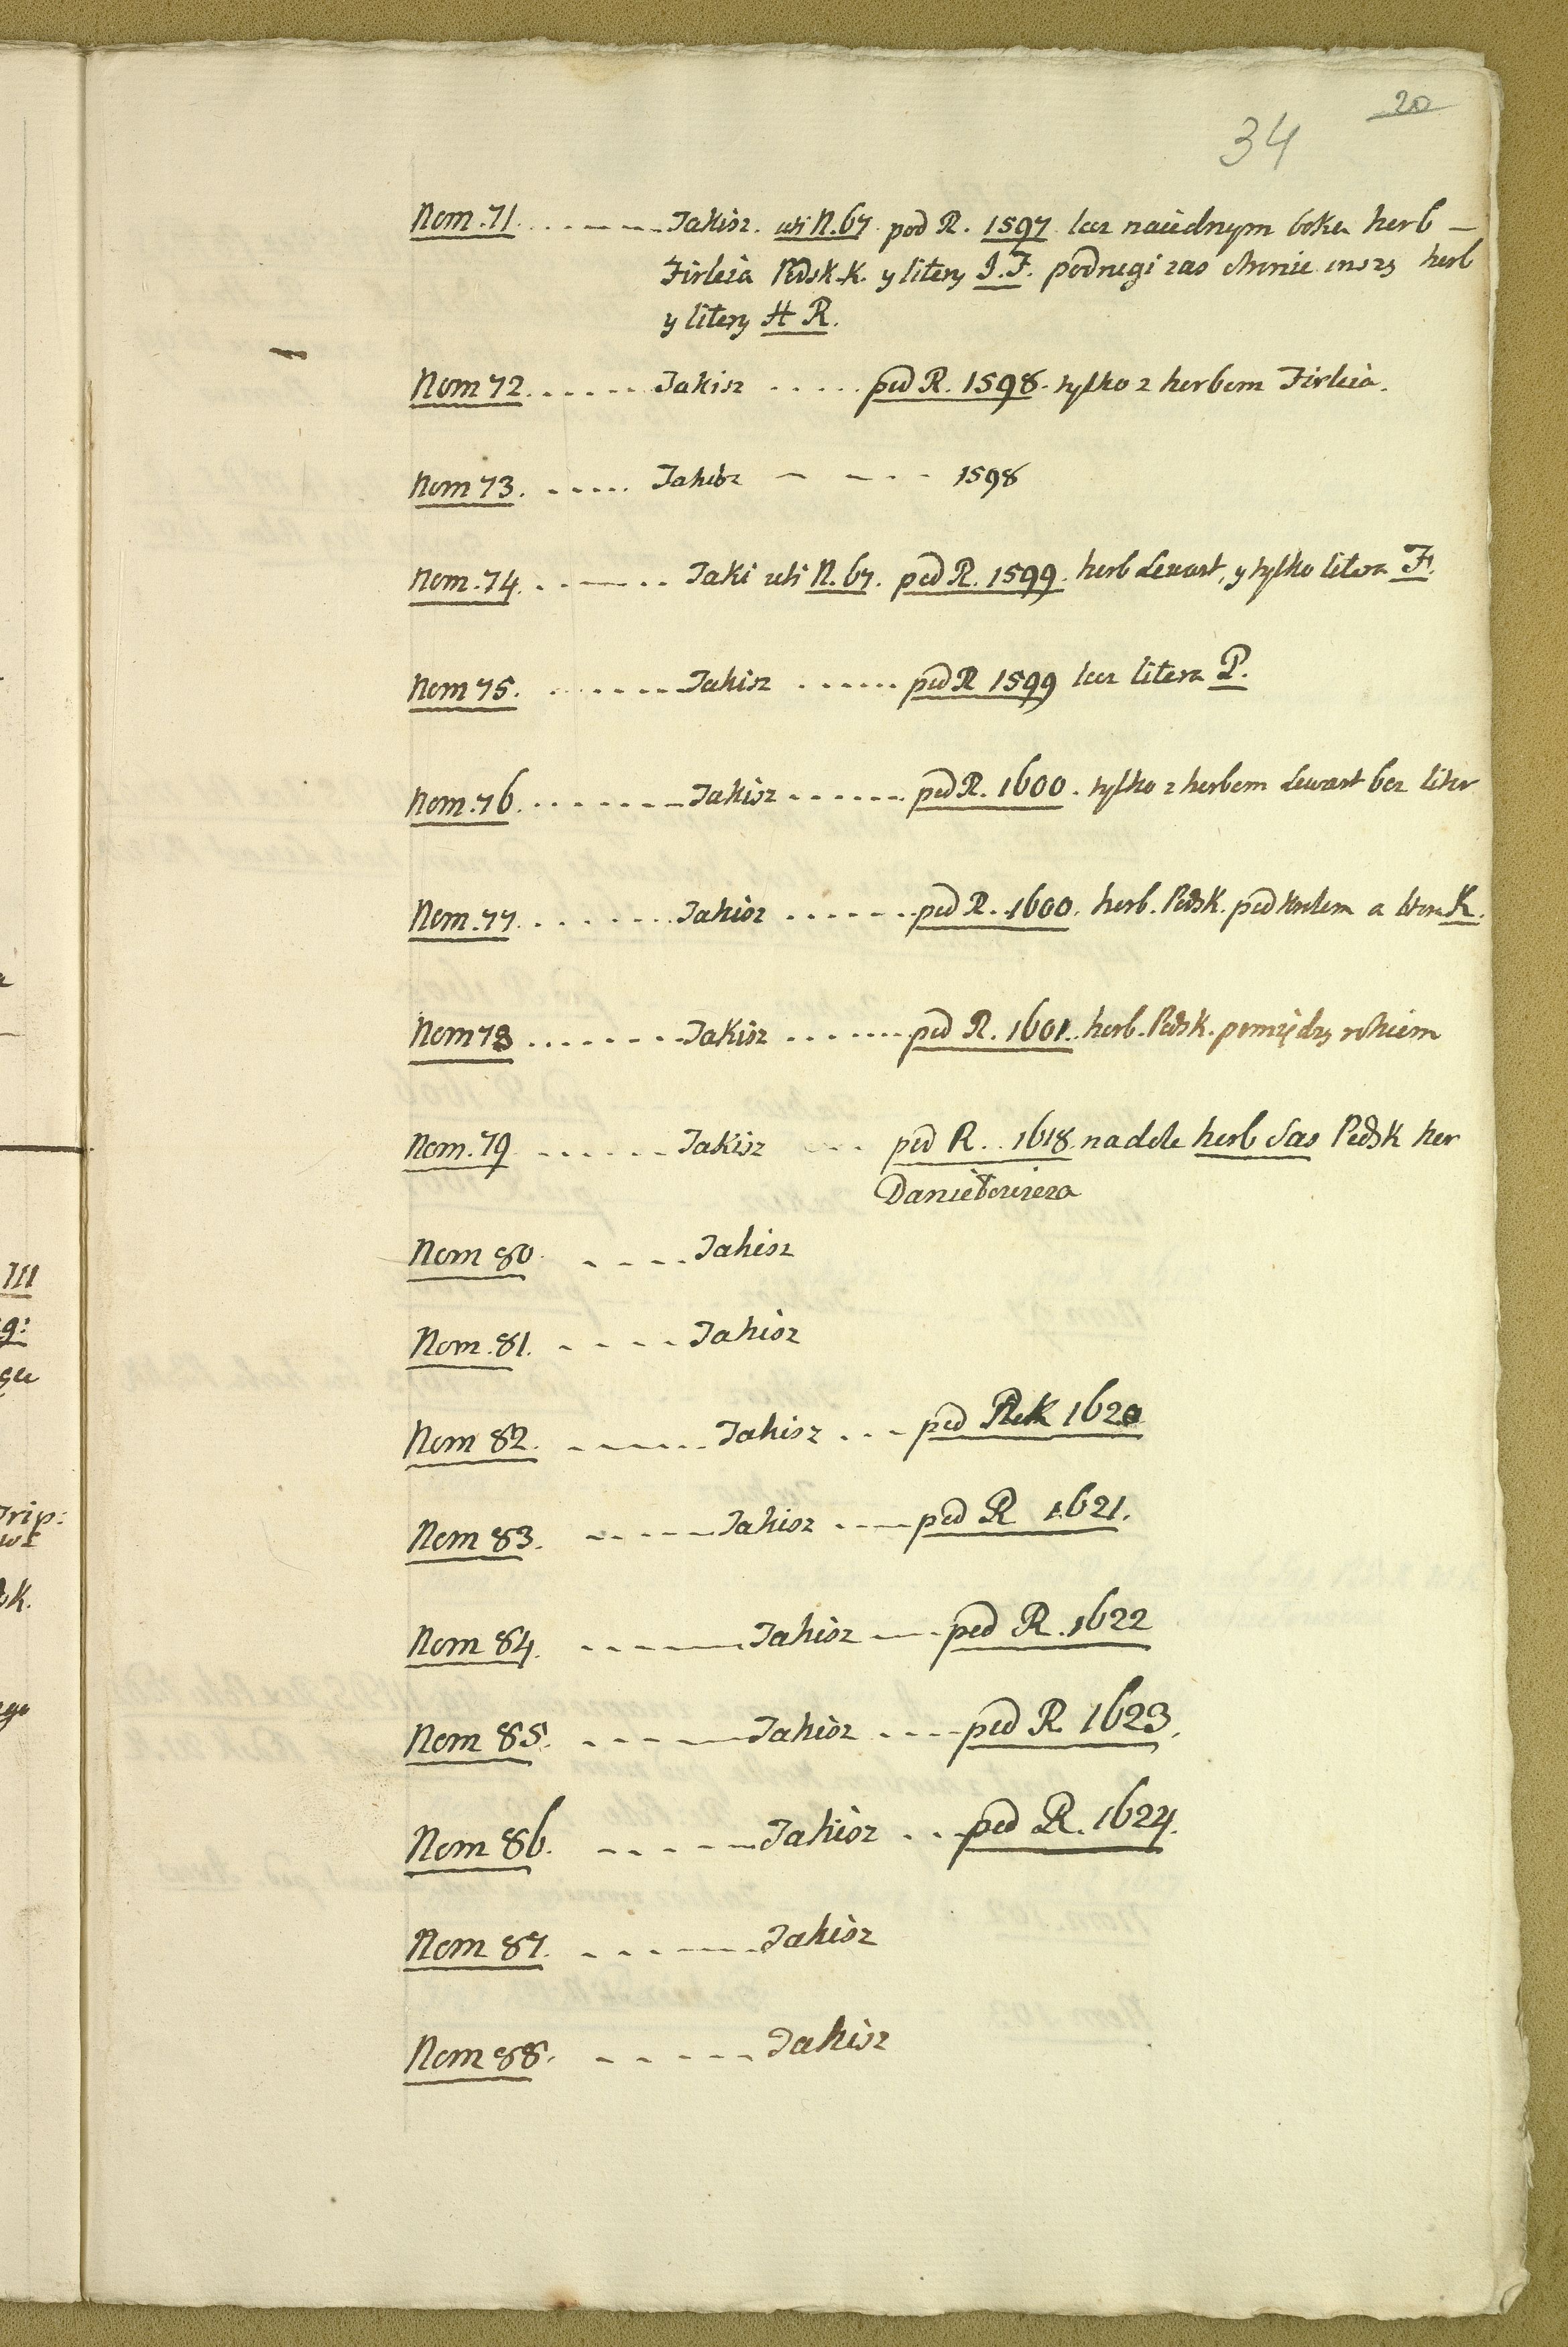 20
34
Nom. 71. . . . - - - Takisz. uti N. 67. pod R. 1597 lecz naiednym boku herb -
Firleia Podsk. K. y litery J. F. podrugi zas stronie inszy herb
y litery H R.
Nom 72. . . . . . Takisz . . . . . pod R. 1598. tylko z herbem Firleia.
Nom 73. . . . . . Takisz - - - - 1598
Nom. 74. . - - . . Taki uti N. 67. pod R. 1599. herb Lewart, y tylko litera F.
Nom 75. . . . . . . . Takisz . . . . . . pod R 1599 lecz litera P.
Nom. 76. . . . . . . . . Takisz . . . . . . . pod R. 1600. tylko z herbem Lewart bez liter
Nom. 77. . . . . . . . Takisz . . . . . . . pod R. 1600. herb. Podsk. pod Krolem a litera K.
Nom 78 . . . . . . . . Takisz . . . . . . . pod R. 1601. herb. Podsk. pomiędzy rokiem
Nom. 79 . . . . . . Takisz . . . . pod R. 1618. nadole herb Sas Podsk her
Daniełowicza
Nom 80. . . . . . Takisz
Nom. 81. . . . . Takisz
Nom 82. . . . . . . Takisz . . . pod Rok 1620
Nom 83. . . . . . . Takisz . . . . pod R 1621.
Nom 84. . . . . . . Takisz - - - pod R. 1622
Nom 85. . . . . . . Takisz . . . . pod R 1623.
Nom 86. . . . . . . Takisz . . . pod R. 1624.
Nom 87. . . . . . . Takisz
Nom 88. . . . . . . Takisz
III
g:
gu
Trip:
sk.
ego